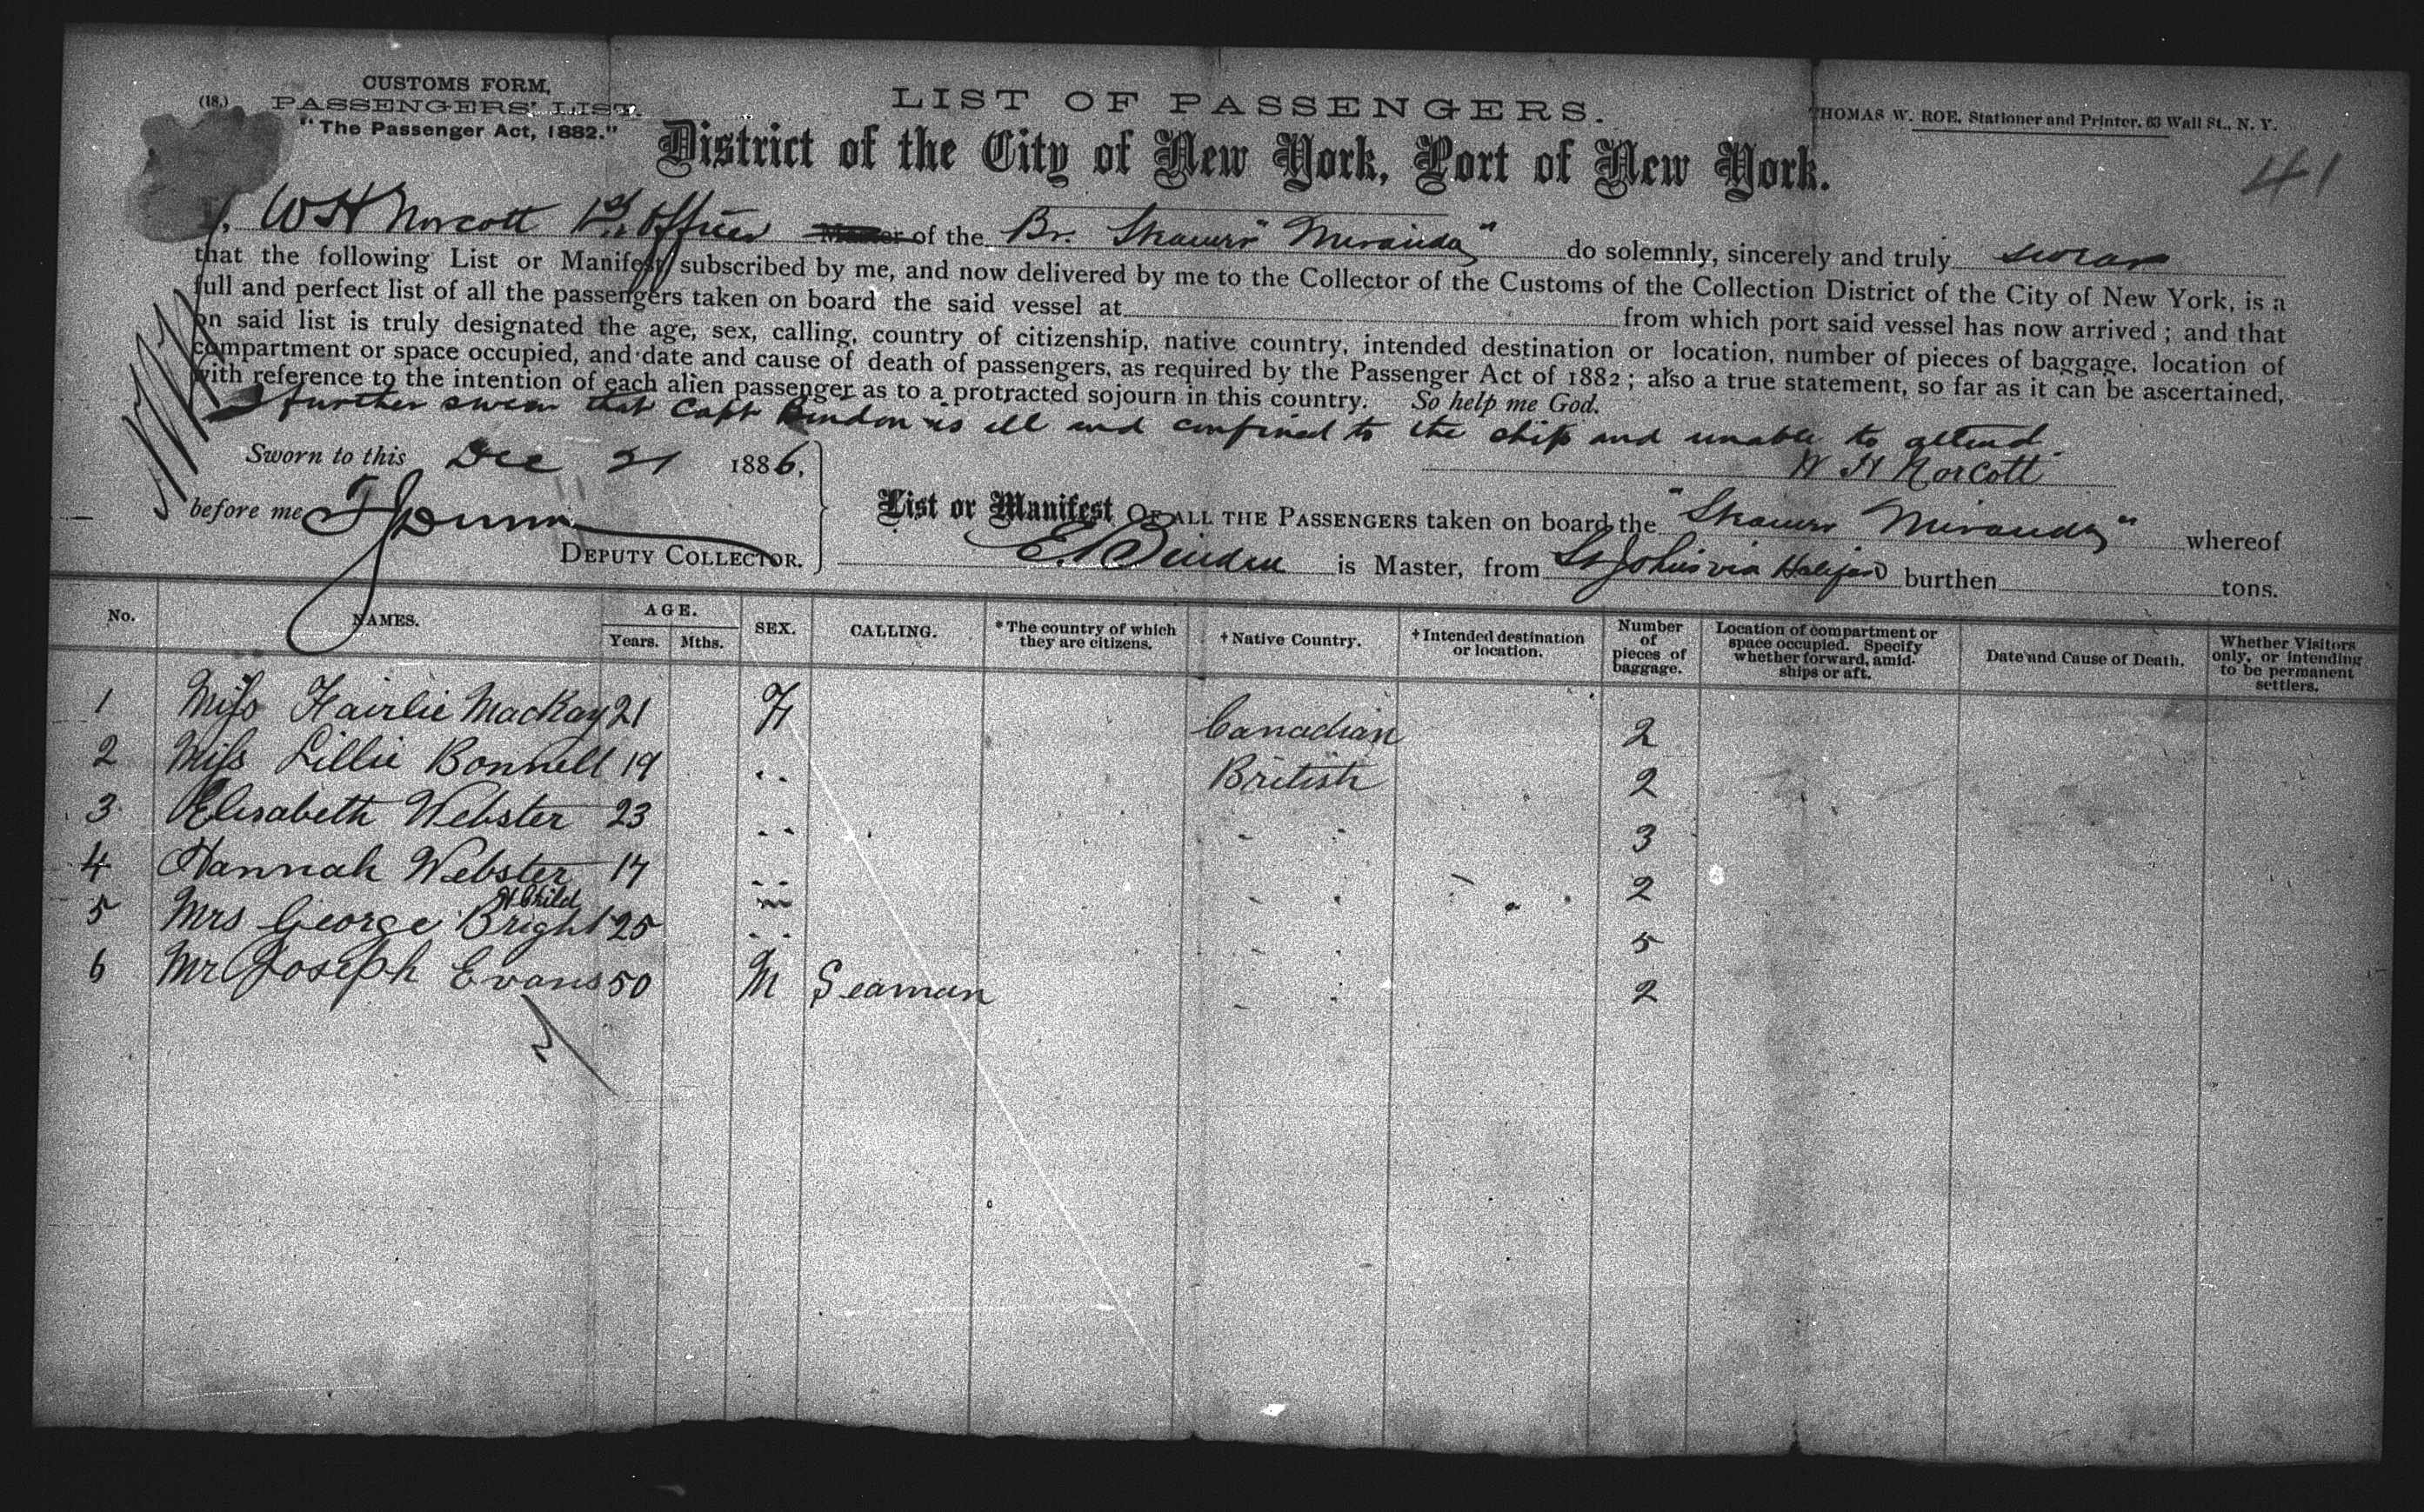 (18.)
CUSTOMS FORM,
PASSENGERS' LIST.
"The Passenger Act, 1882."
LIST OF PASSENGERS.
THOMAS W. ROE, Stationer and Printer, 63 Wall St., N. Y.
District of the City of New York, Port of New York.
41
I, W H Norcott 1st Officer Master of the Br. Steamer "Miranda" do solemnly, sincerely and truly swear
that the following List or Manifest, subscribed by me, and now delivered by me to the Collector of the Customs of the Collection District of the City of New York, is a
full and perfect list of all the passengers taken on board the said vessel at from which port said vessel has now arrived; and that
on said list is truly designated the age, sex, calling, country of citizenship, native country, intended destination or location, number of pieces of baggage, location of
compartment or space occupied, and date and cause of death of passengers, as required by the Passenger Act of 1882; also a true statement, so far as it can be ascertained,
with reference to the intention of each alien passenger as to a protracted sojourn in this country. So help me God.
I further swear that Capt Bindon is ill and confined to the ship and unable to attend
W H Norcott
Sworn to this Dec 21 1886,
before me
DEPUTY COLLECTOR.
List or Manifest OF ALL THE PASSENGERS taken on board the "Steamer Miranda" whereof
is Master, from St Johns via Halifax burthen tons.
No. NAMES. AGE. Years. Mths. SEX. CALLING. *The country of which they are citizens. †Native Country. †Intended destination or location. Number of pieces of baggage. Location of compartment or space occupied. Specify whether forward, amidships or aft. Date and Cause of Death. Whether Visitors only, or intending to be permanent settlers.
1 Miss Fairlie MacKay 21 F Canadian 2
2 Miss Lillie Bonnell 19 " British 2
3 Elisabeth Webster 23 " " " 3
4 Hannah Webster 17 " 2
5 Mrs George Bright & Child 25 " " " 5
6 Mr Joseph Evans 50 M Seaman " " 2